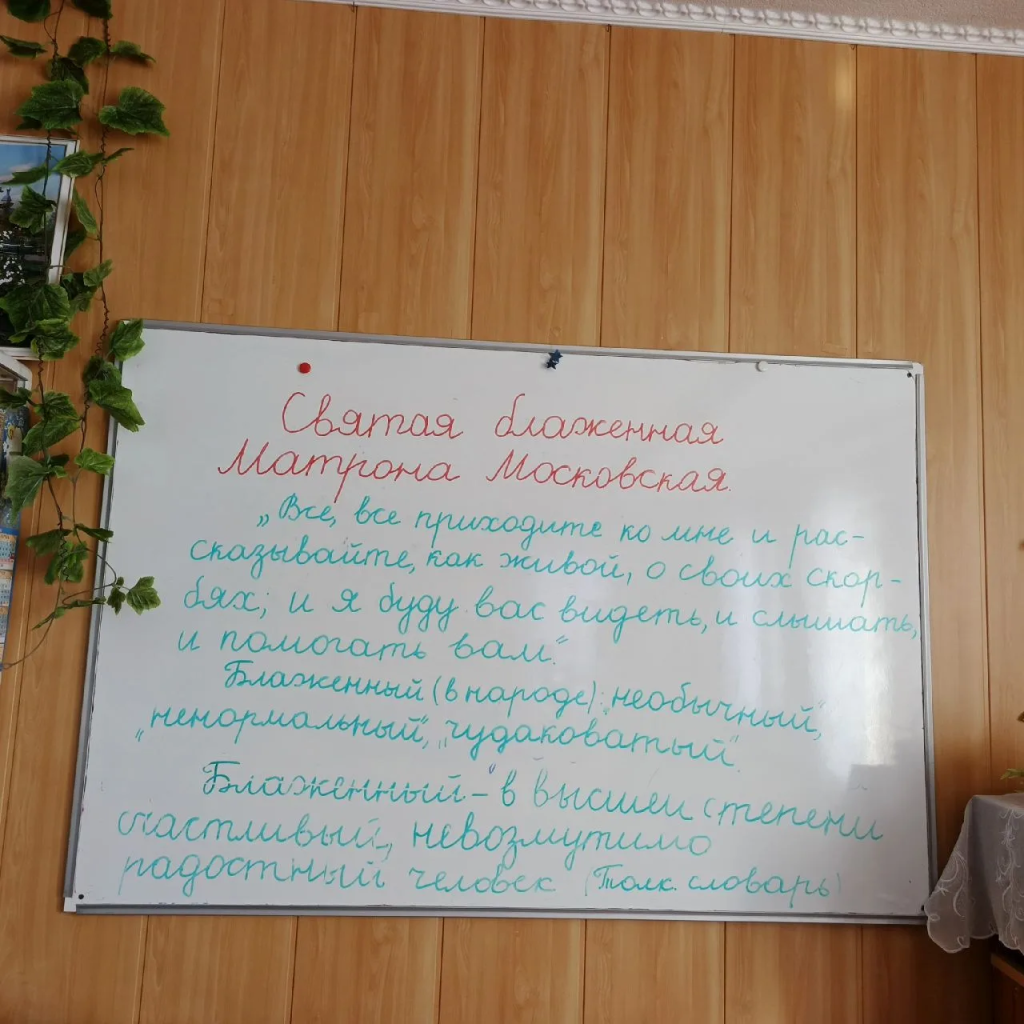 Святая блаженная
Матрона Московская.
„Все, все приходите ко мне и рас-
сказывайте, как живой, о своих скор-
бях; и я буду вас видеть, и слышать,
и помогать вам."
Блаженный (в народе): „необычный",
„ненормальный", „чудаковатый"
Блаженный - в высшей степени
счастливый, невозмутимо
радостный человек (Толк. словарь)